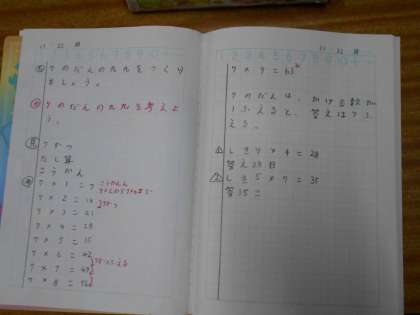 7のだんの九九をつくり
ましょう。
7のだんの九九を考えよ
う。
7ずつ
たし算
7×1=7
7×2=14
7×3=21
7×4=28
7×5=35
7×6=42
7×7=49
7×8=56
7ずつふえる
7×9=63
7のだんは、かける数が
1ふえると、答えは7ふ
える。
しき7×4=28
答え28日
しき5×7=35
答35こ